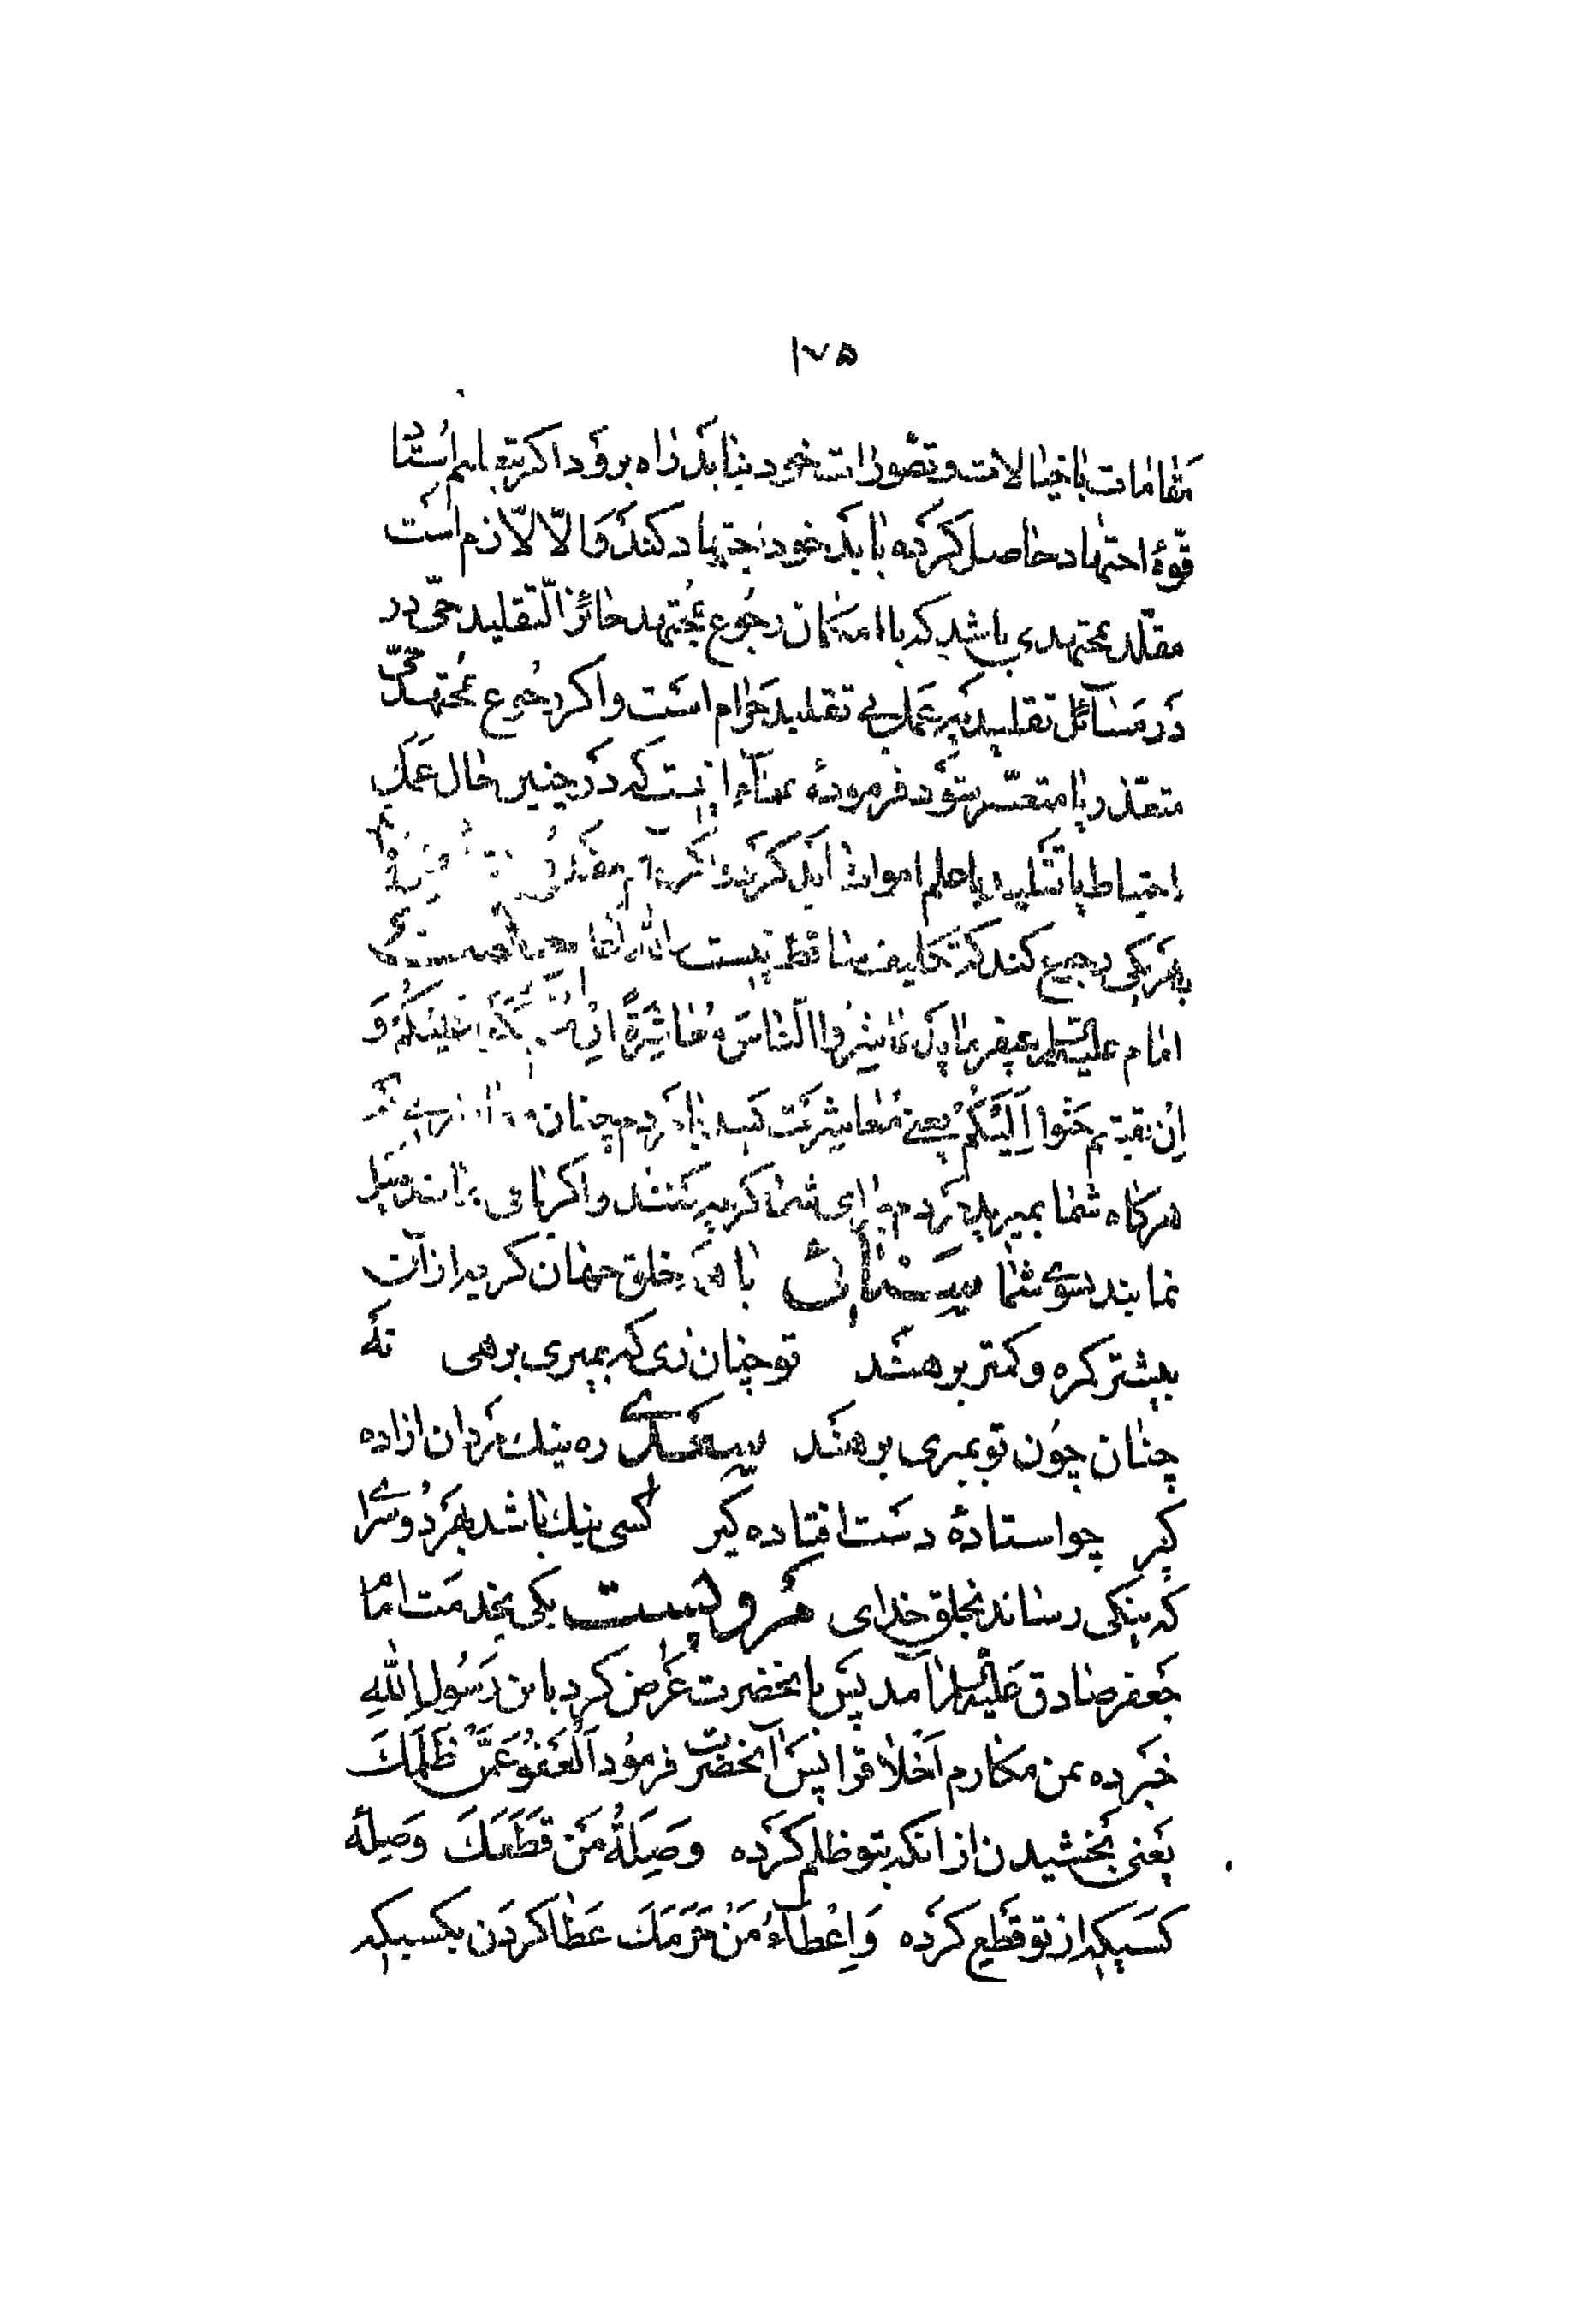 ۱۷۵
مقامات با خیالات و تصورات خود نباید راه برود اگر بتعلیم استاد
قوۀ اجتهاد حاصل کرده باید خود اجتهاد کند و الّا لازم است
مقلد مجتهدی باشد که با امکان رجوع بمجتهد جائز التقلید حیّ در
در مسائل تقلیدیه عمل بی تقلید حرام است و اگر رجوع بمجتهد حیّ
متعذر یا متعسّر شود فرمودۀ علماء اینست که در چنین حال عمل
احتیاط یا تقلید با علم اموات باید کرد و اگر
بهریکی رجوع کند که تکلیف ساقط نیست
امام علیه السلام میفرماید عاشِرُوا النّاسَ مُعاشِرَةً اِنْ علیکم وَ
اِن بقیتم حَنّوا اِلَیْکُمْ یعنی مُعاشرت کنید با مردم چنان
هرکاه شما بمیرید مردم برای شما کریه کنند و اکر باقی مانند میل
نمایند بسوی شما سنائی با همه خلق جهان کر چه از آن
بیشتر کمره و کمتر برهند تو چنان زی که بمیری برهی نه
چنان چون تو بمیری برهند سعدی ره نیک مردان ازاده
کیر چو استادۀ دست افتاده کیر کسی نیک باشد بهر دو سرا
که نیکی رساند بخلق خدای مرویست یکی بخدمت امام
جعفر صادق علیه السلام آمد پس بانحضرت عرض کرد یابن رسول الله
خبر ده بمن مکارم اخلاق را پس آنحضرت فرمود اَلْعَفْوُ عَمَّنْ ظَلَمَکَ
یعنی بخشیدن از انکه بتو ظلم کرده وَصِلَةُ مَن قَطَعَکَ وصلۀ
کسیکه از تو قطع کرده وَ اِعْطآءُ مَنْ حَرَمَکَ عطا کردن بکسیکه